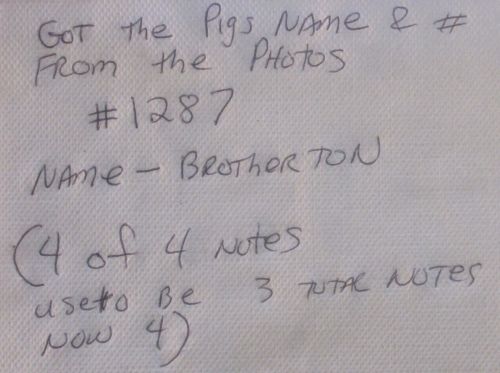 Got the Pigs Name & #
From the Photos
#1287
Name - Brotherton
(4 of 4 Notes
useto Be 3 total Notes
Now 4)